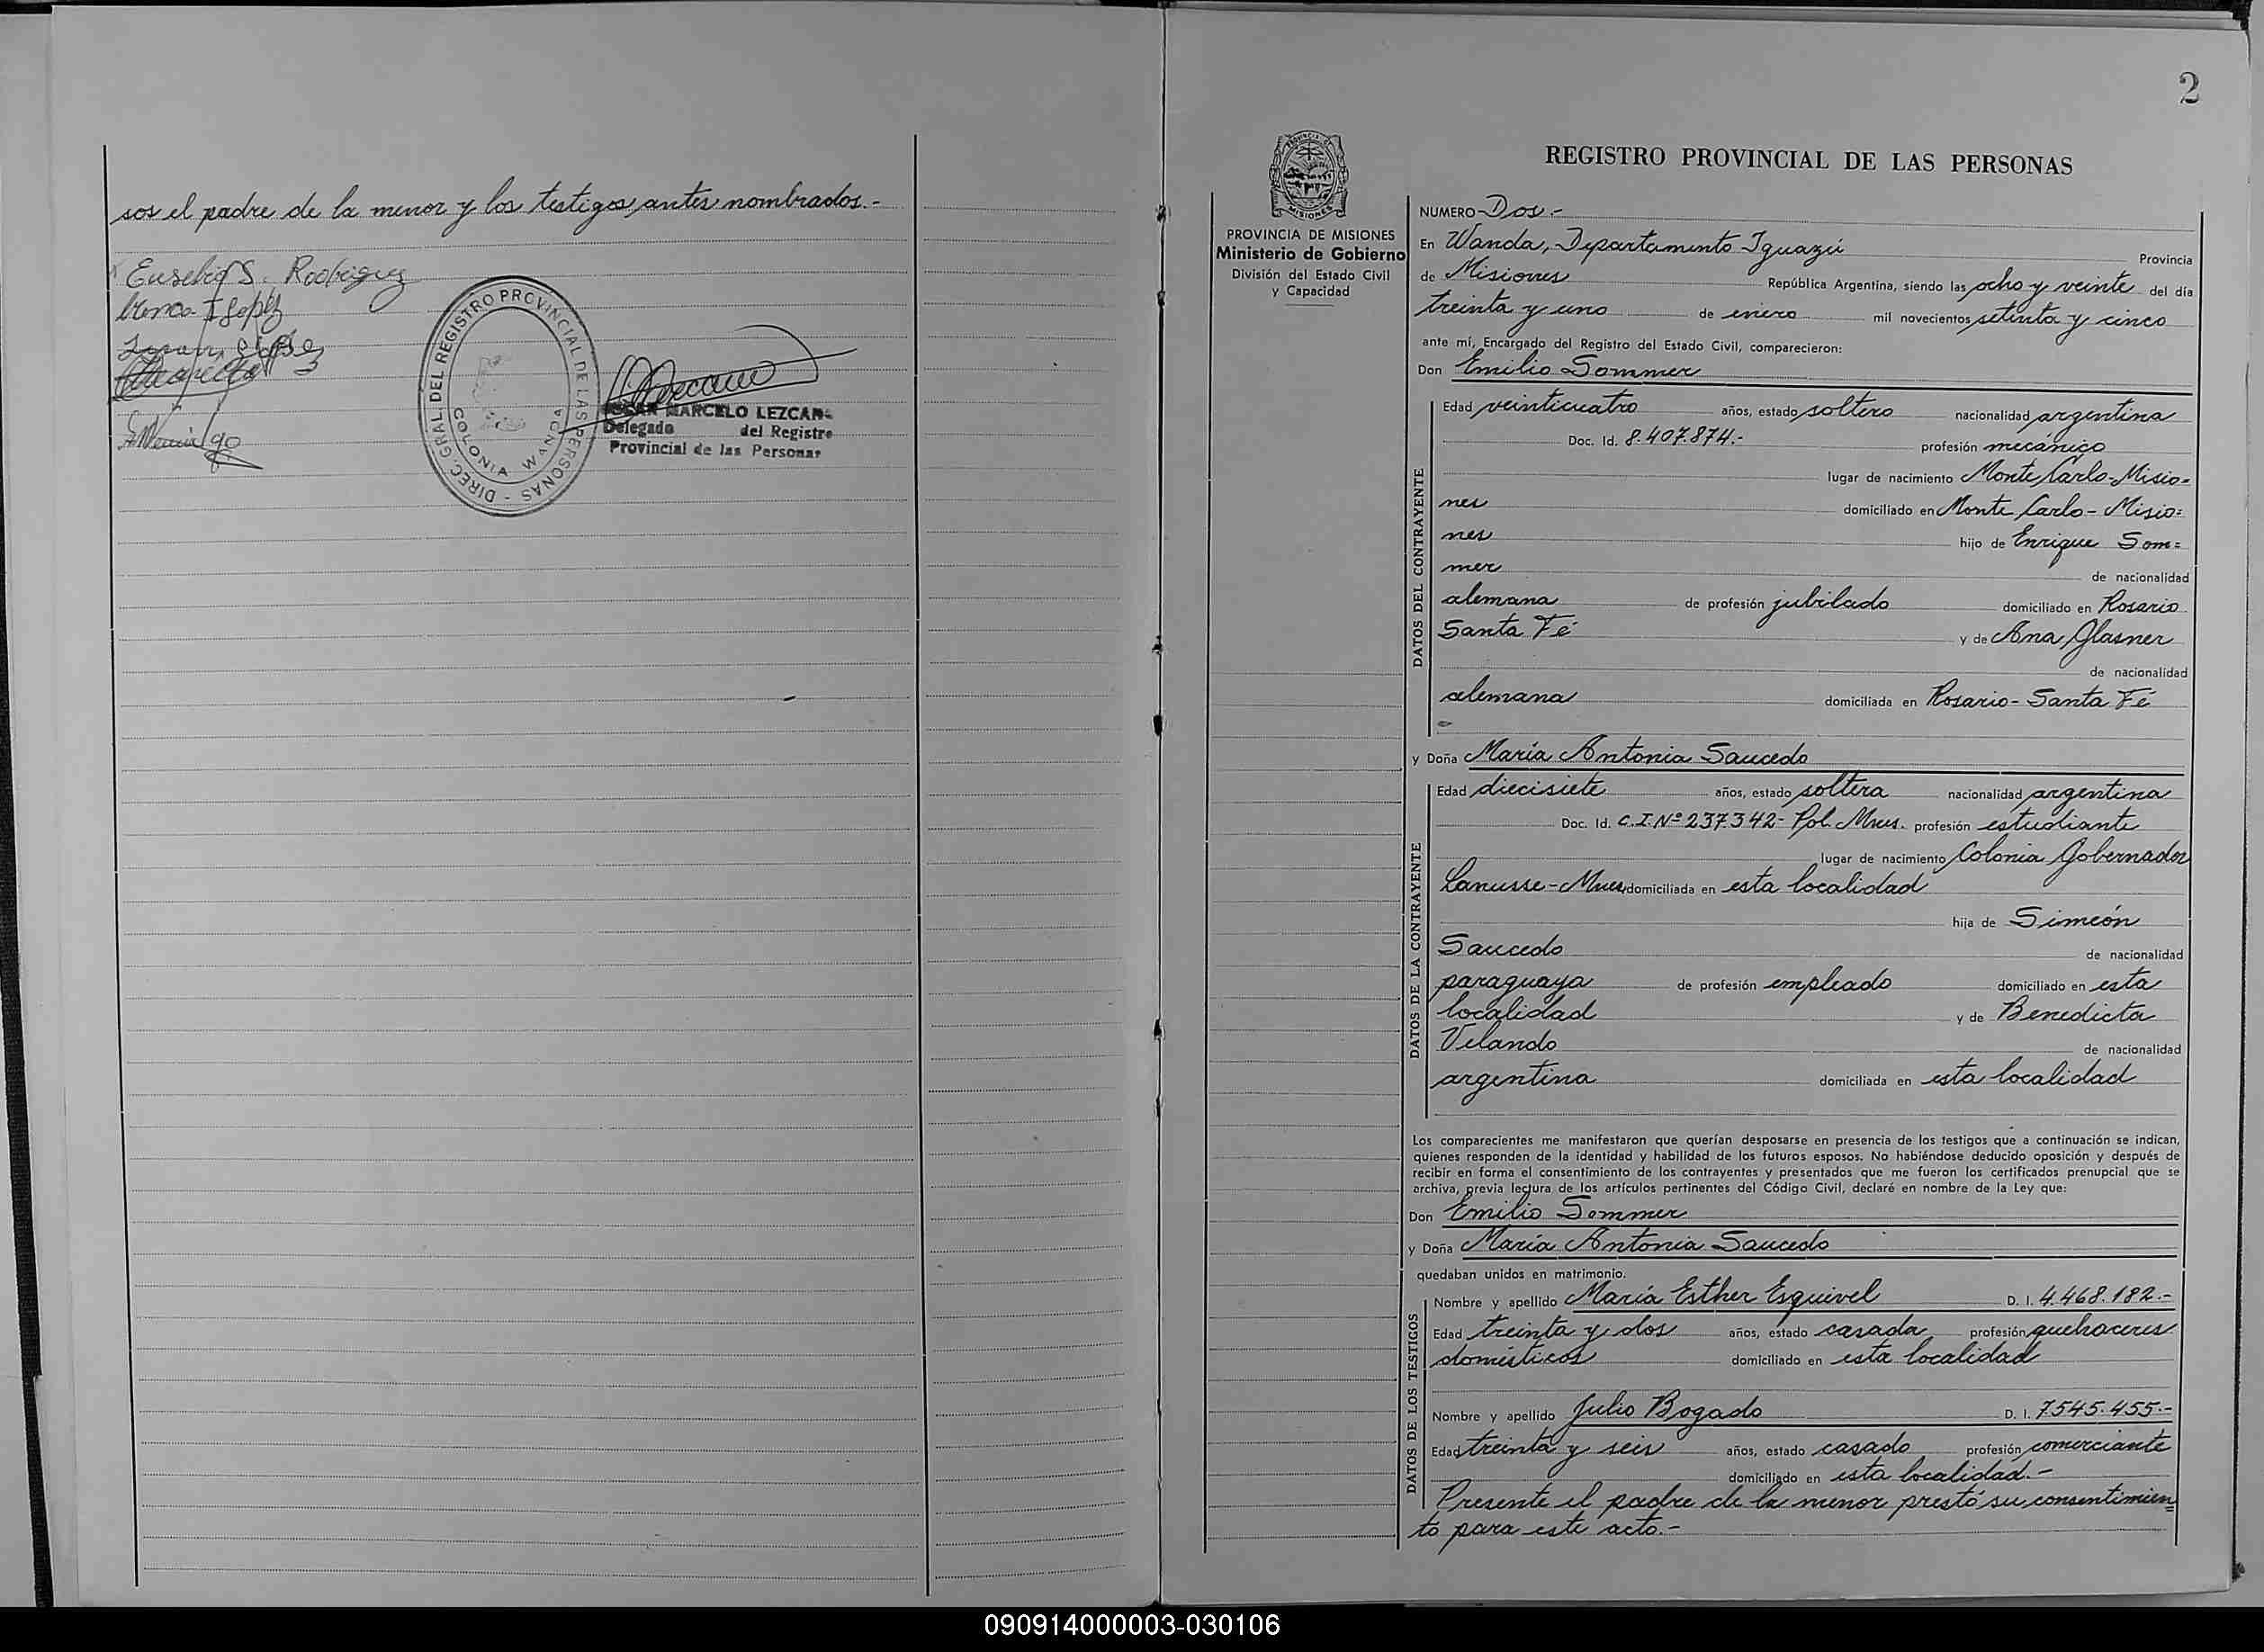 sos el padre de la menor y los testigos antes nombrados.-
Eusebio S. Rodriguez
DIREC. GRAL. DEL REGISTRO PROVINCIAL DE LAS PERSONAS -
COLONIA WANDA
OSCAR MARCELO LEZCANO
Delegado del Registro
Provincial de las Personas
2
PROVINCIA DE MISIONES
Ministerio de Gobierno
División del Estado Civil
y Capacidad
REGISTRO PROVINCIAL DE LAS PERSONAS
NUMERO Dos.-
En Wanda, Departamento Iguazú Provincia
de Misiones República Argentina, siendo las ocho y veinte del día
treinta y uno de enero mil novecientos setenta y cinco
ante mí, Encargado del Registro del Estado Civil, comparecieron:
Don Emilio Sommer
DATOS DEL CONTRAYENTE
Edad veinticuatro años, estado soltero nacionalidad argentina
Doc. Id. 8.407.874.- profesión mecánico
lugar de nacimiento Monte Carlo-Misio=
nes domiciliado en Monte Carlo- Misio=
nes hijo de Enrique Som=
mer de nacionalidad
alemana de profesión jubilado domiciliado en Rosario
Santa Fé y de Ana Glasner
de nacionalidad
alemana domiciliada en Rosario- Santa Fé
y Doña María Antonia Saucedo
DATOS DE LA CONTRAYENTE
Edad diecisiete años, estado soltera nacionalidad argentina
Doc. Id. C.I.Nº 237.342- Pol. Mnes. profesión estudiante
lugar de nacimiento Colonia Gobernador
Lanusse-Mnes, domiciliada en esta localidad
hija de Simeón
Saucedo de nacionalidad
paraguaya de profesión empleado domiciliado en esta
localidad y de Benedicta
Velando de nacionalidad
argentina domiciliada en esta localidad
Los comparecientes me manifestaron que querían desposarse en presencia de los testigos que a continuación se indican,
quienes responden de la identidad y habilidad de los futuros esposos. No habiéndose deducido oposición y después de
recibir en forma el consentimiento de los contrayentes y presentados que me fueron los certificados prenupcial que se
archiva, previa lectura de los artículos pertinentes del Código Civil, declaré en nombre de la Ley que:
Don Emilio Sommer
y Doña María Antonia Saucedo
quedaban unidos en matrimonio.
DATOS DE LOS TESTIGOS
Nombre y apellido María Esther Esquivel D. I. 4.468.182.-
Edad treinta y dos años, estado casada profesión quehaceres
domésticos domiciliado en esta localidad
Nombre y apellido Julio Bogado D. I. 7.545.455.-
Edad treinta y seis años, estado casado profesión comerciante
domiciliado en esta localidad.-
Presente el padre de la menor prestó su consentimien=
to para este acto.-
090914000003-030106